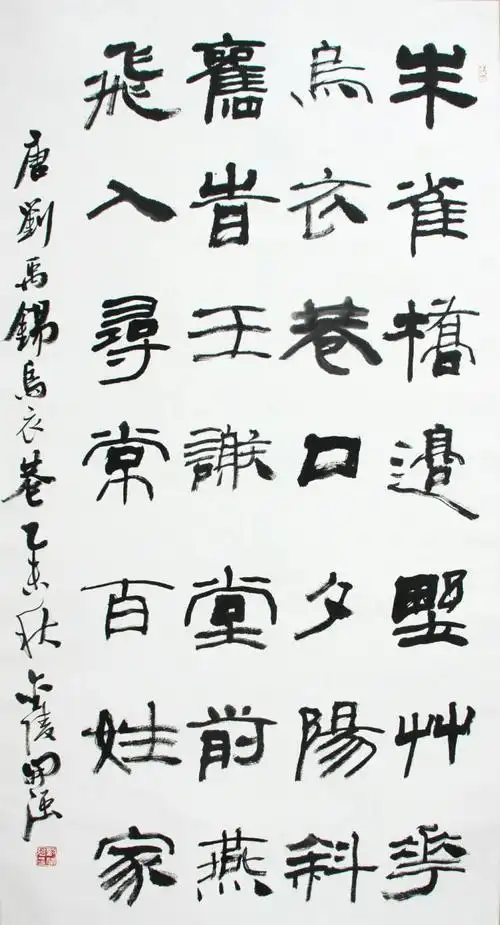 朱雀橋邊墅艸花
烏衣巷口夕陽斜
舊旹王謝堂前燕
飛入尋常百姓家
唐劉禹錫烏衣巷乙未秋金陵